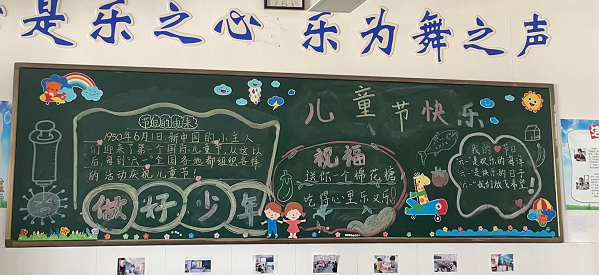 是乐之心 乐为舞之声
儿童节快乐
节日的由来
1950年6月1日,新中国的小主人
们迎来了第一个国际儿童节,从这以
后,每到六一全国各地都组织各样
的活动庆祝儿童节!
做好少年
祝福
送你一个棉花糖
吃得心里乐又乐!
我的节日
六一是欢乐的海洋
六一是快乐的日子
六一我们放飞希望!